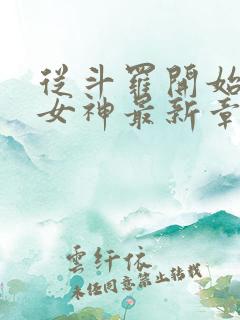 從斗羅開始
女神最新章
雲纤依
未经同意禁止转载